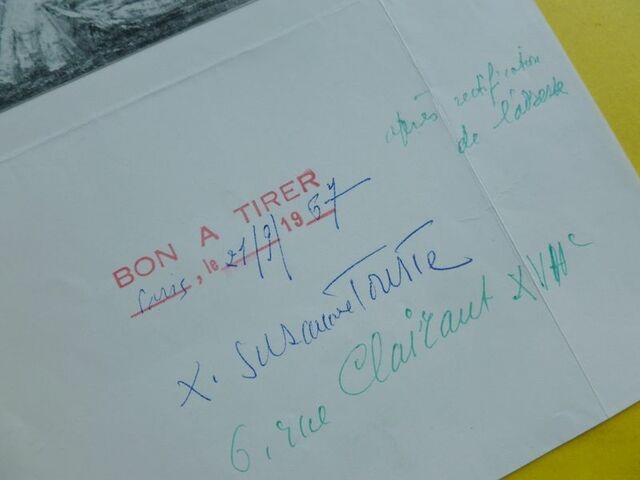 après rectification
de l'adresse
BON A TIRER
Paris, le 21/9/1967
X. Suzanne Tourte
6, rue Clairaut XVIIe